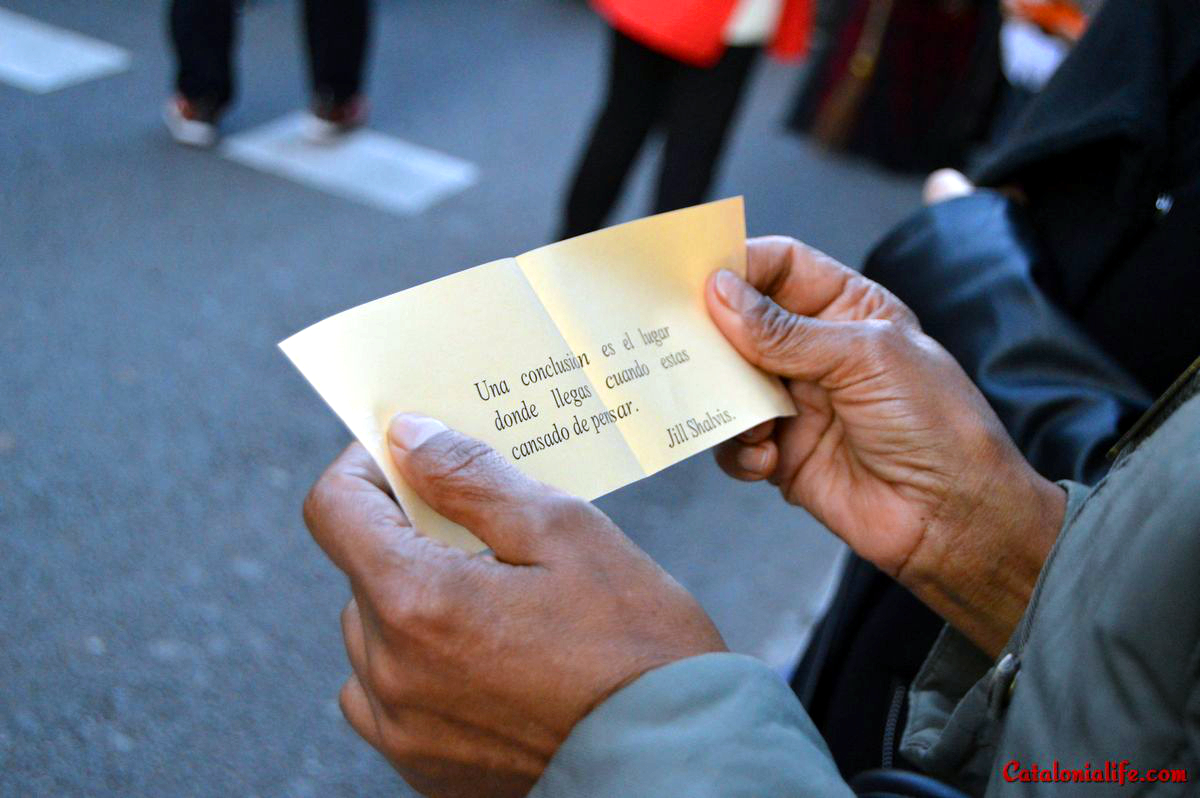 Una conclusion es el lugar
donde llegas cuando estas
cansado de pensar.
Jill Shalvis.
Catalonialife.com